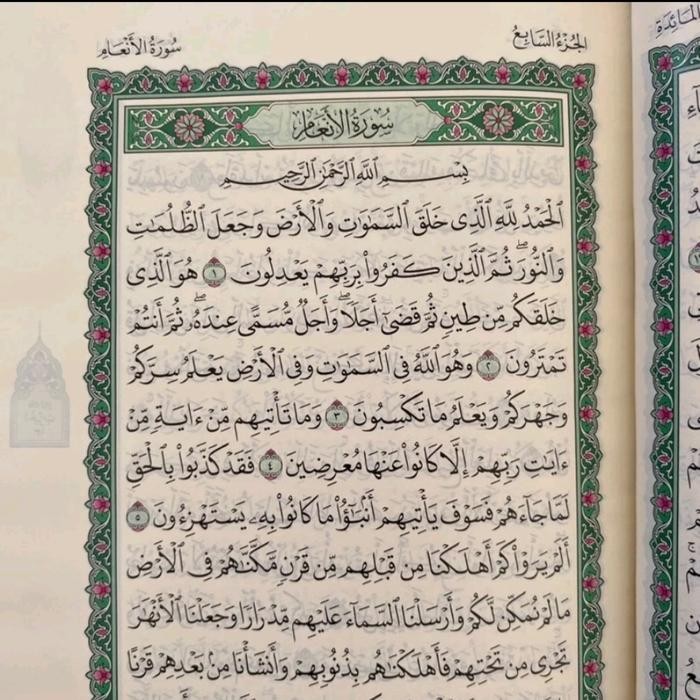 سُورَةُ الأَنْعَامِ
الجُزْءُ السَّابِعُ
سُورَةُ الأَنْعَامِ
بِسْمِ ٱللَّهِ ٱلرَّحْمَٰنِ ٱلرَّحِيمِ
ٱلْحَمْدُ لِلَّهِ ٱلَّذِى خَلَقَ ٱلسَّمَٰوَٰتِ وَٱلْأَرْضَ وَجَعَلَ ٱلظُّلُمَٰتِ
وَٱلنُّورَ ۖ ثُمَّ ٱلَّذِينَ كَفَرُوا۟ بِرَبِّهِمْ يَعْدِلُونَ ١ هُوَ ٱلَّذِى
خَلَقَكُم مِّن طِينٍ ثُمَّ قَضَىٰٓ أَجَلًا ۖ وَأَجَلٌ مُّسَمًّى عِندَهُۥ ۖ ثُمَّ أَنتُمْ
تَمْتَرُونَ ٢ وَهُوَ ٱللَّهُ فِى ٱلسَّمَٰوَٰتِ وَفِى ٱلْأَرْضِ يَعْلَمُ سِرَّكُمْ
وَجَهْرَكُمْ وَيَعْلَمُ مَا تَكْسِبُونَ ٣ وَمَا تَأْتِيهِم مِّنْ ءَايَةٍ مِّنْ
ءَايَٰتِ رَبِّهِمْ إِلَّا كَانُوا۟ عَنْهَا مُعْرِضِينَ ٤ فَقَدْ كَذَّبُوا۟ بِٱلْحَقِّ
لَمَّا جَآءَهُمْ فَسَوْفَ يَأْتِيهِمْ أَنۢبَٰٓؤُا۟ مَا كَانُوا۟ بِهِۦ يَسْتَهْزِءُونَ ٥
أَلَمْ يَرَوْا۟ كَمْ أَهْلَكْنَا مِن قَبْلِهِم مِّن قَرْنٍ مَّكَّنَّٰهُمْ فِى ٱلْأَرْضِ
مَا لَمْ نُمَكِّن لَّكُمْ وَأَرْسَلْنَا ٱلسَّمَآءَ عَلَيْهِم مِّدْرَارًا وَجَعَلْنَا ٱلْأَنْهَٰرَ
تَجْرِى مِن تَحْتِهِمْ فَأَهْلَكْنَٰهُم بِذُنُوبِهِمْ وَأَنشَأْنَا مِنۢ بَعْدِهِمْ قَرْنًا